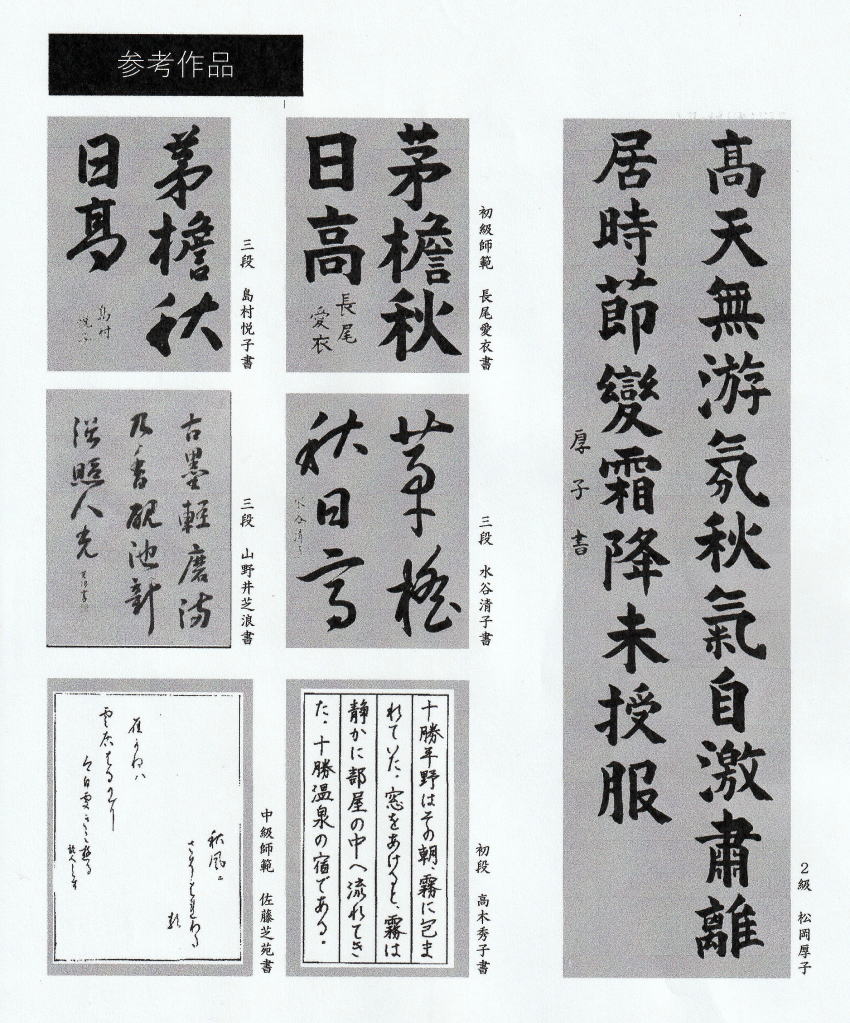 参考作品
髙天無游氛秋氣自激肅離
居時節變霜降未授服
厚子書
2級 松岡厚子
茅檐秋
日高
長尾
愛衣
初級師範 長尾愛衣書
茅檐秋
日高
島村
悦子
三段 島村悦子書
茅檐
秋日高
水谷清子
三段 水谷清子書
古墨輕磨満
几香硯池新
浴照人光
三段 山野井芝浪書
十勝平野はその朝、霧に包ま
れていた。窓をあけると、霧は
静かに部屋の中へ流れてき
た。十勝温泉の宿である。
初段 高木秀子書
秋風二
中級師範 佐藤芝苑書